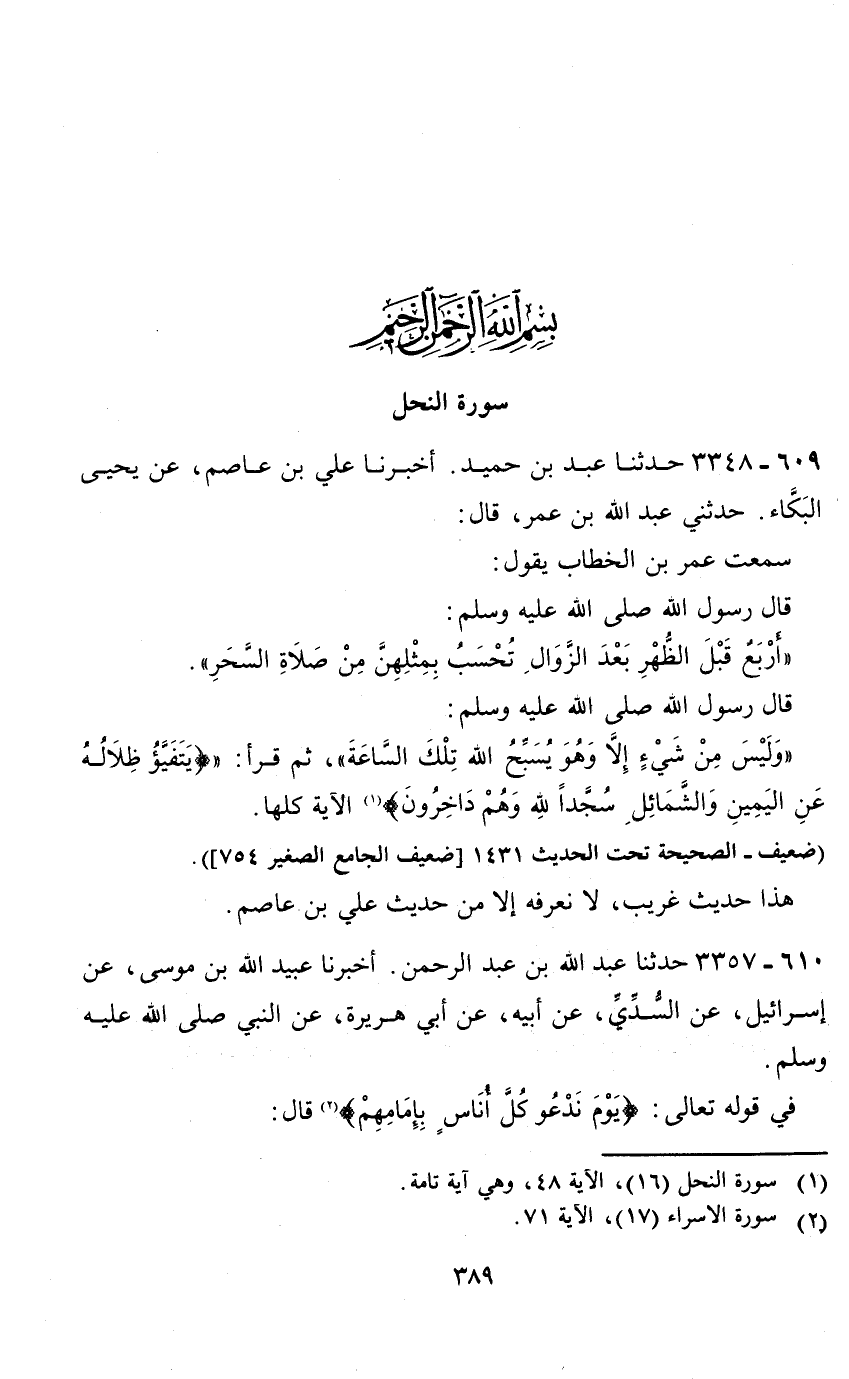 بِسْمِ اللَّهِ الرَّحْمَٰنِ الرَّحِيمِ
سورة النحل
٦٠٩ - ٣٣٤٨ حدثنا عبد بن حميد. أخبرنا علي بن عاصم، عن يحيى
البَكَّاء. حدثني عبد الله بن عمر، قال:
سمعت عمر بن الخطاب يقول:
قال رسول الله صلى الله عليه وسلم:
«أَرْبَعٌ قَبْلَ الظُّهْرِ بَعْدَ الزَّوَالِ تُحْسَبُ بِمِثْلِهِنَّ مِنْ صَلَاةِ السَّحَرِ».
قال رسول الله صلى الله عليه وسلم:
«وَلَيْسَ مِنْ شَيْءٍ إِلَّا وَهُوَ يُسَبِّحُ الله تِلْكَ السَّاعَةَ»، ثم قرأ: «﴿يَتَفَيَّؤُ ظِلَالُهُ
عَنِ اليَمِينِ وَالشَّمَائِلِ سُجَّداً للهِ وَهُمْ دَاخِرُونَ﴾(١) الآية كلها.
(ضعيف - الصحيحة تحت الحديث ١٤٣١ [ضعيف الجامع الصغير ٧٥٤]).
هذا حديث غريب، لا نعرفه إلا من حديث علي بن عاصم.
٦١٠ - ٣٣٥٧ حدثنا عبد الله بن عبد الرحمن. أخبرنا عبيد الله بن موسى، عن
إسرائيل، عن السُّدِّيِّ، عن أبيه، عن أبي هريرة، عن النبي صلى الله عليه
وسلم.
في قوله تعالى: ﴿يَوْمَ نَدْعُو كُلَّ أُنَاسٍ بِإِمَامِهِمْ﴾(٢) قال:
(١) سورة النحل (١٦)، الآية ٤٨، وهي آية تامة.
(٢) سورة الاسراء (١٧)، الآية ٧١.
٣٨٩